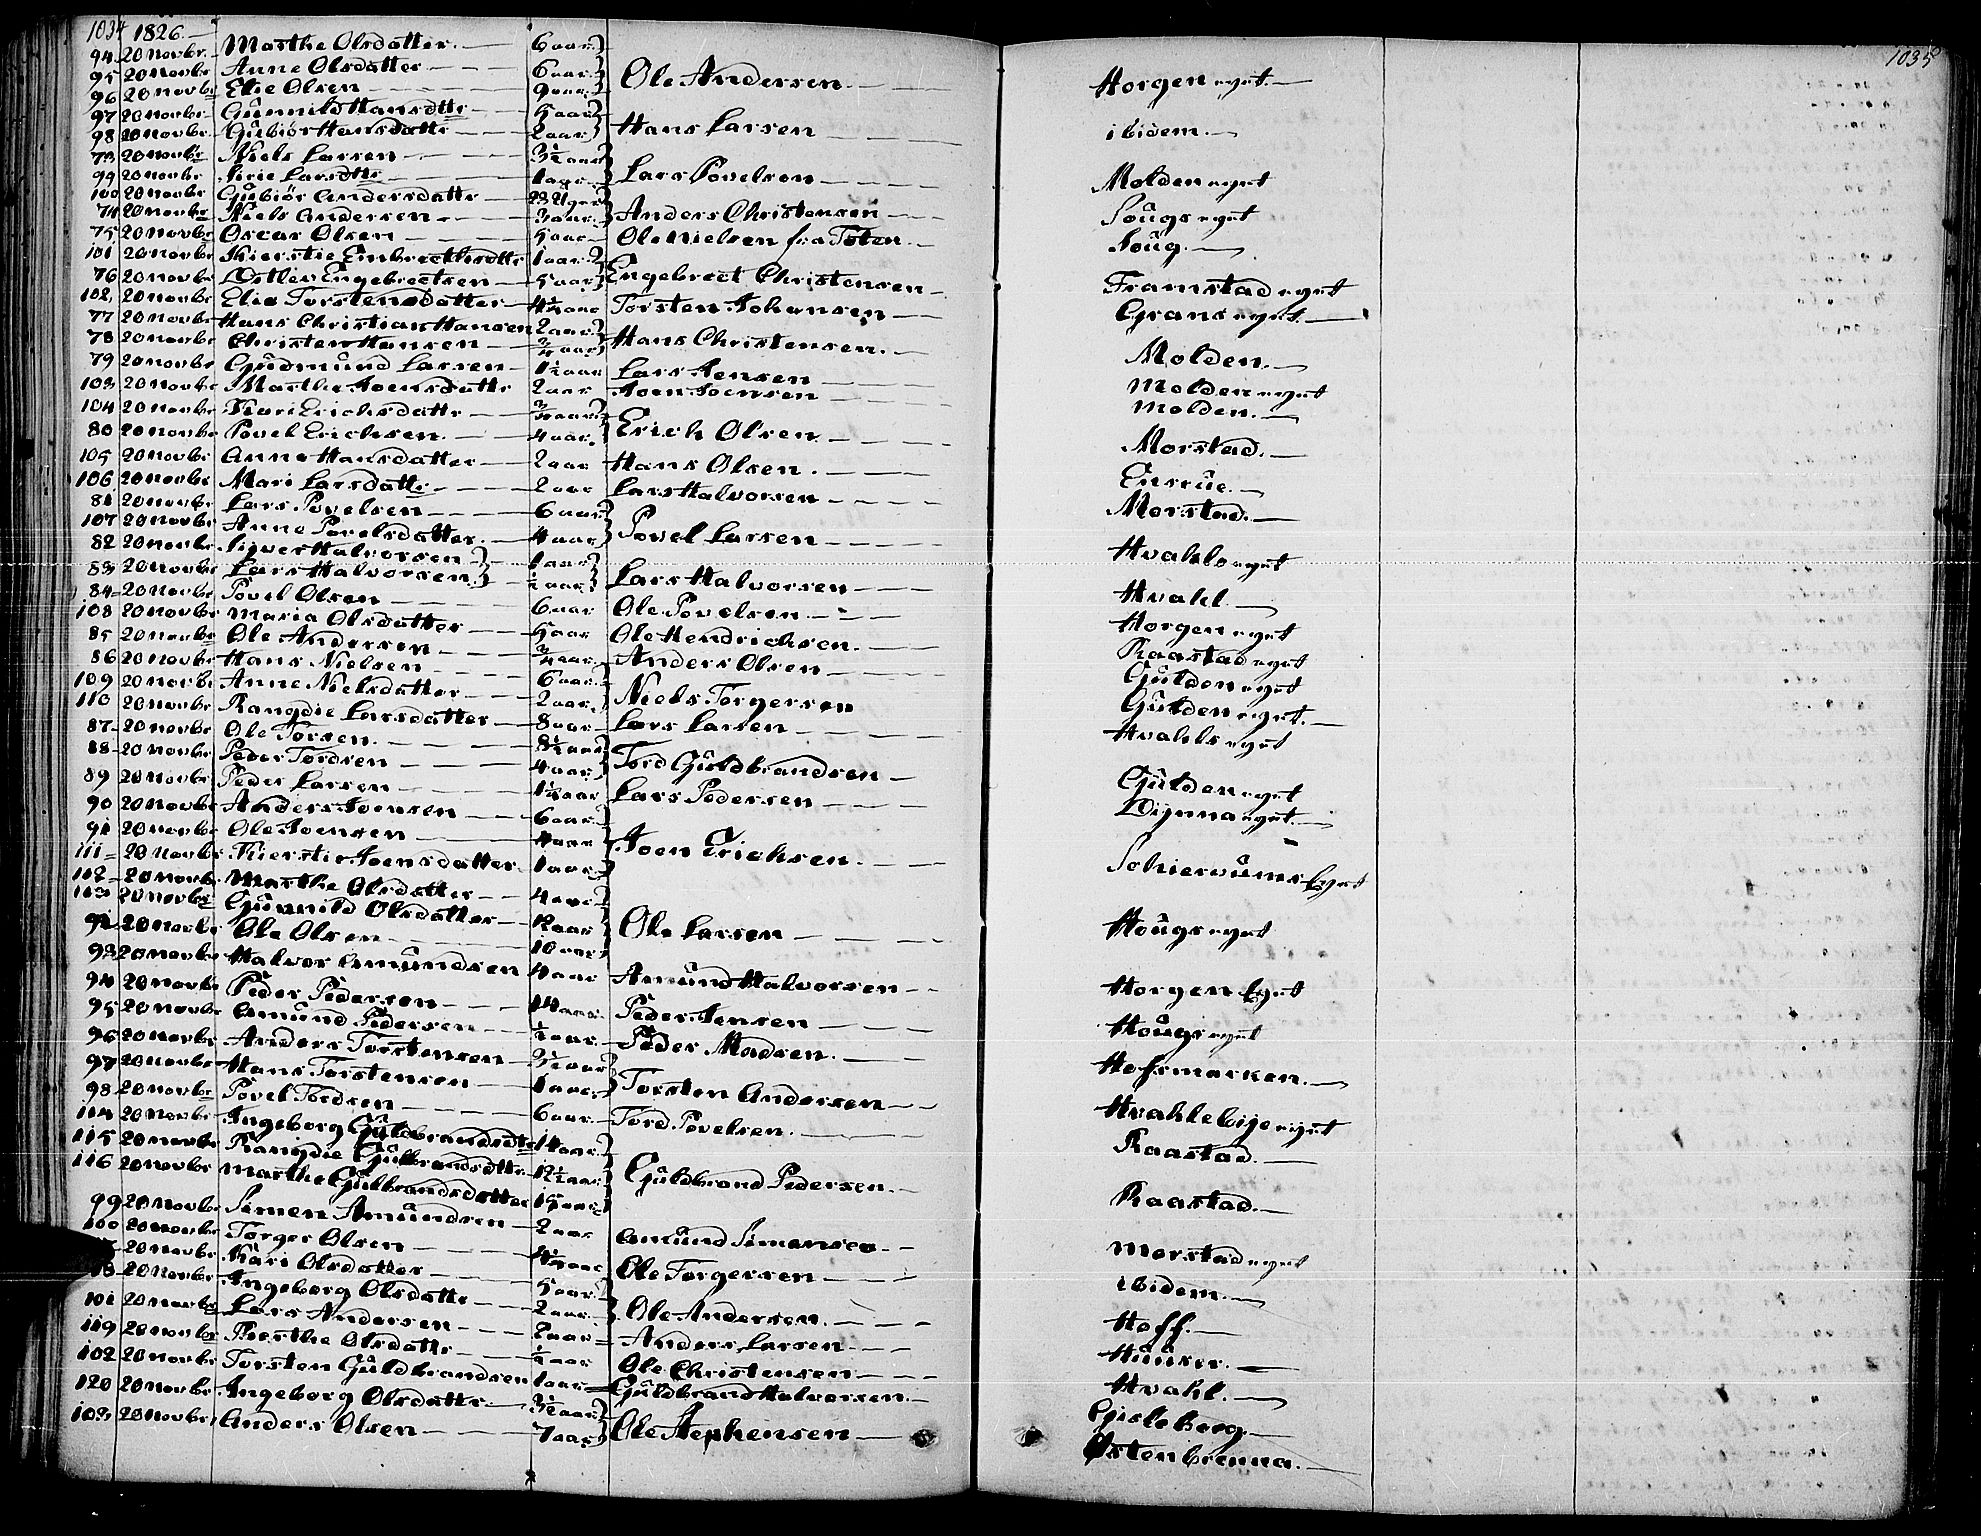 1034 1826.
94 20 Novbr. Marthe Olsdatter. 6 aar.
95 20 Novbr Anne Olsdatter 6 aar. Ole Andersen Horgen eget.
96 20 Novbr Elie Olsen 9 aar.
97 20 Novbr. Gunnild Hansdttr 5 aar Hans Larsen ibidem.
98 20 Novbr. Gubiør Hansdattr 2 aar
73 20 Novbr Niels Larsen 3½ aar Lars Povelsen Molden eget
99 20 Novbr Sirie Larsdttr 1 aar.
100 20 Novbr Gubiør Andersdattr 23 Uger Anders Christensen Sougs eget
74 20 Novbr Niels Andersen 3 aar.
75 20 Novbr Oscar Olsen 5 aar Ole Nielsen fra Toten Soug.
101 20 Novbr Kierstie Embrecthsdttr 1 aar. Engebrect Christensen Framstad eget
76 20 Novbr Østlev Engebrectsen 5 aar
102, 20 Novbr Elie Torstensdatter 4½ aar Torsten Johansen Grans eget.
77 20 Novbr Hans Christian Hansen 2 aar. Hans Christensen. Molden.
78 20 Novbr Christen Hansen ¾ aar
79 20 Novbr Gudmund Larsen 1½ aar Lars Jensen Molden eget
103 20 Novbr Marthe Joensdattr 2 aar Joen Joensen Molden.
104 20 Novbr Kari Erichsdattr ¾ aar Erich Olsen Morstad.
80 20 Novbr Povel Erichsen. 4 aar.
105 20 Novbr Anne Hansdatter 2 aar Hans Olsen. Ensrue.
106 20 Novbr Mari Larsdattr 2 aar Lars Halvorsen Morstad.
81 20 Novbr Lars Povelsen 6 aar Povel Larsen Hvahls eget
107 20 Novbr Anne Povelsdatter. 4 aar
82 20 Novbr Siver Halvorsen 1 aar Lars Halvorsen Hvahl.
83 20 Novbr Lars Halvorsen. ½ aar
84 20 Novbr Povel Olsen 6 aar Ole Povelsen Horgen eget
108 20 Novbr Maria Olsdatter 5 aar Ole Hendrichsen. Raastad eget
85 20 Novbr Ole Andersen ¾ aar. Anders Olsen Gulden eget
86 20 Novbr Hans Nielsen 6 aar. Niels Torgersen Gulden eget.
109 20 Novbr Anne Nielsdatter 2 aar.
110 20 Novbr Rangdie Larsdatter 8 aar Lars Larsen Hvahls eget
87 20 Novbr Ole Torsen. 8½ aar Tord Guldbrandsen Gulden eget
88 20 Novbr Peder Tordsen 4 aar
89 20 Novbr Peder Larsen 1½ aar Lars Pedersen Dynna eget.
90 20 Novbr Anders Joensen 6 aar Joen Erichsen. Schiervums Eget
91 20 Novbr Ole Joensen 4 aar
111 20 Novbr Kierstie Joensdatter 1 aar
112 20 Novbr Marthe Olsdatter 4 aar Ole Larsen Hougs eget
113 20 Novbr Gunnild Olsdatter 12 aar
92 20 Novbr Ole Olsen 10 aar
93 20 Novbr Halvor Amundsen 4 aar Amund Halvorsen Horgen Eget
94 20 Novbr Peder Pedersen 14 aar. Peder Jensen Hougs eget
95 20 Novbr Amund Pedersen ½ aar. Peder Madsen. Hofsmarken.
96 20 Novbr Anders Torstensen 3½ aar Torsten Andersen Hvahlebye eget
97 20 Novbr Hans Torstensen 1 aar.
98 20 Novbr Povel Tordsen 6 aar Tord Povelsen. Raastad.
114 20 Novbr Ingeborg Guldbrandsdtr 14 aar Guldbrand Pedersen. Raastad.
115 20 Novbr Rangdie Gulbrandsdttr 12½ aar
116 20 Novbr Marthe Gulbrandsdatter 15 aar
99 20 Novbr Simen Amundsen 2 aar Amund Simensen Morstad eget
100 20 Novbr Torger Olsen 4½ aar Ole Torgersen ibidem.
20 Novbr Kari Olsdatter 5 aar Ole Andersen. Hoff.
20 Novbr Ingeborg Olsdattr 2 aar
101 20 Novbr Lars Andersen 2 aar Anders Larsen
119 20 Novbr Marthe Olsdattr ½ aar Ole Christensen Hvahl.
102 20 Novbr Torsten Guldbrandsen 1 aar Guldbrand Halvorsen. Gisleberg
120 20 Novbr Ingeborg Olsdattr. 3½ aar Ole Stephensen Østenbrenna.
103 20 Novbr Anders Olsen 7 aar
1035